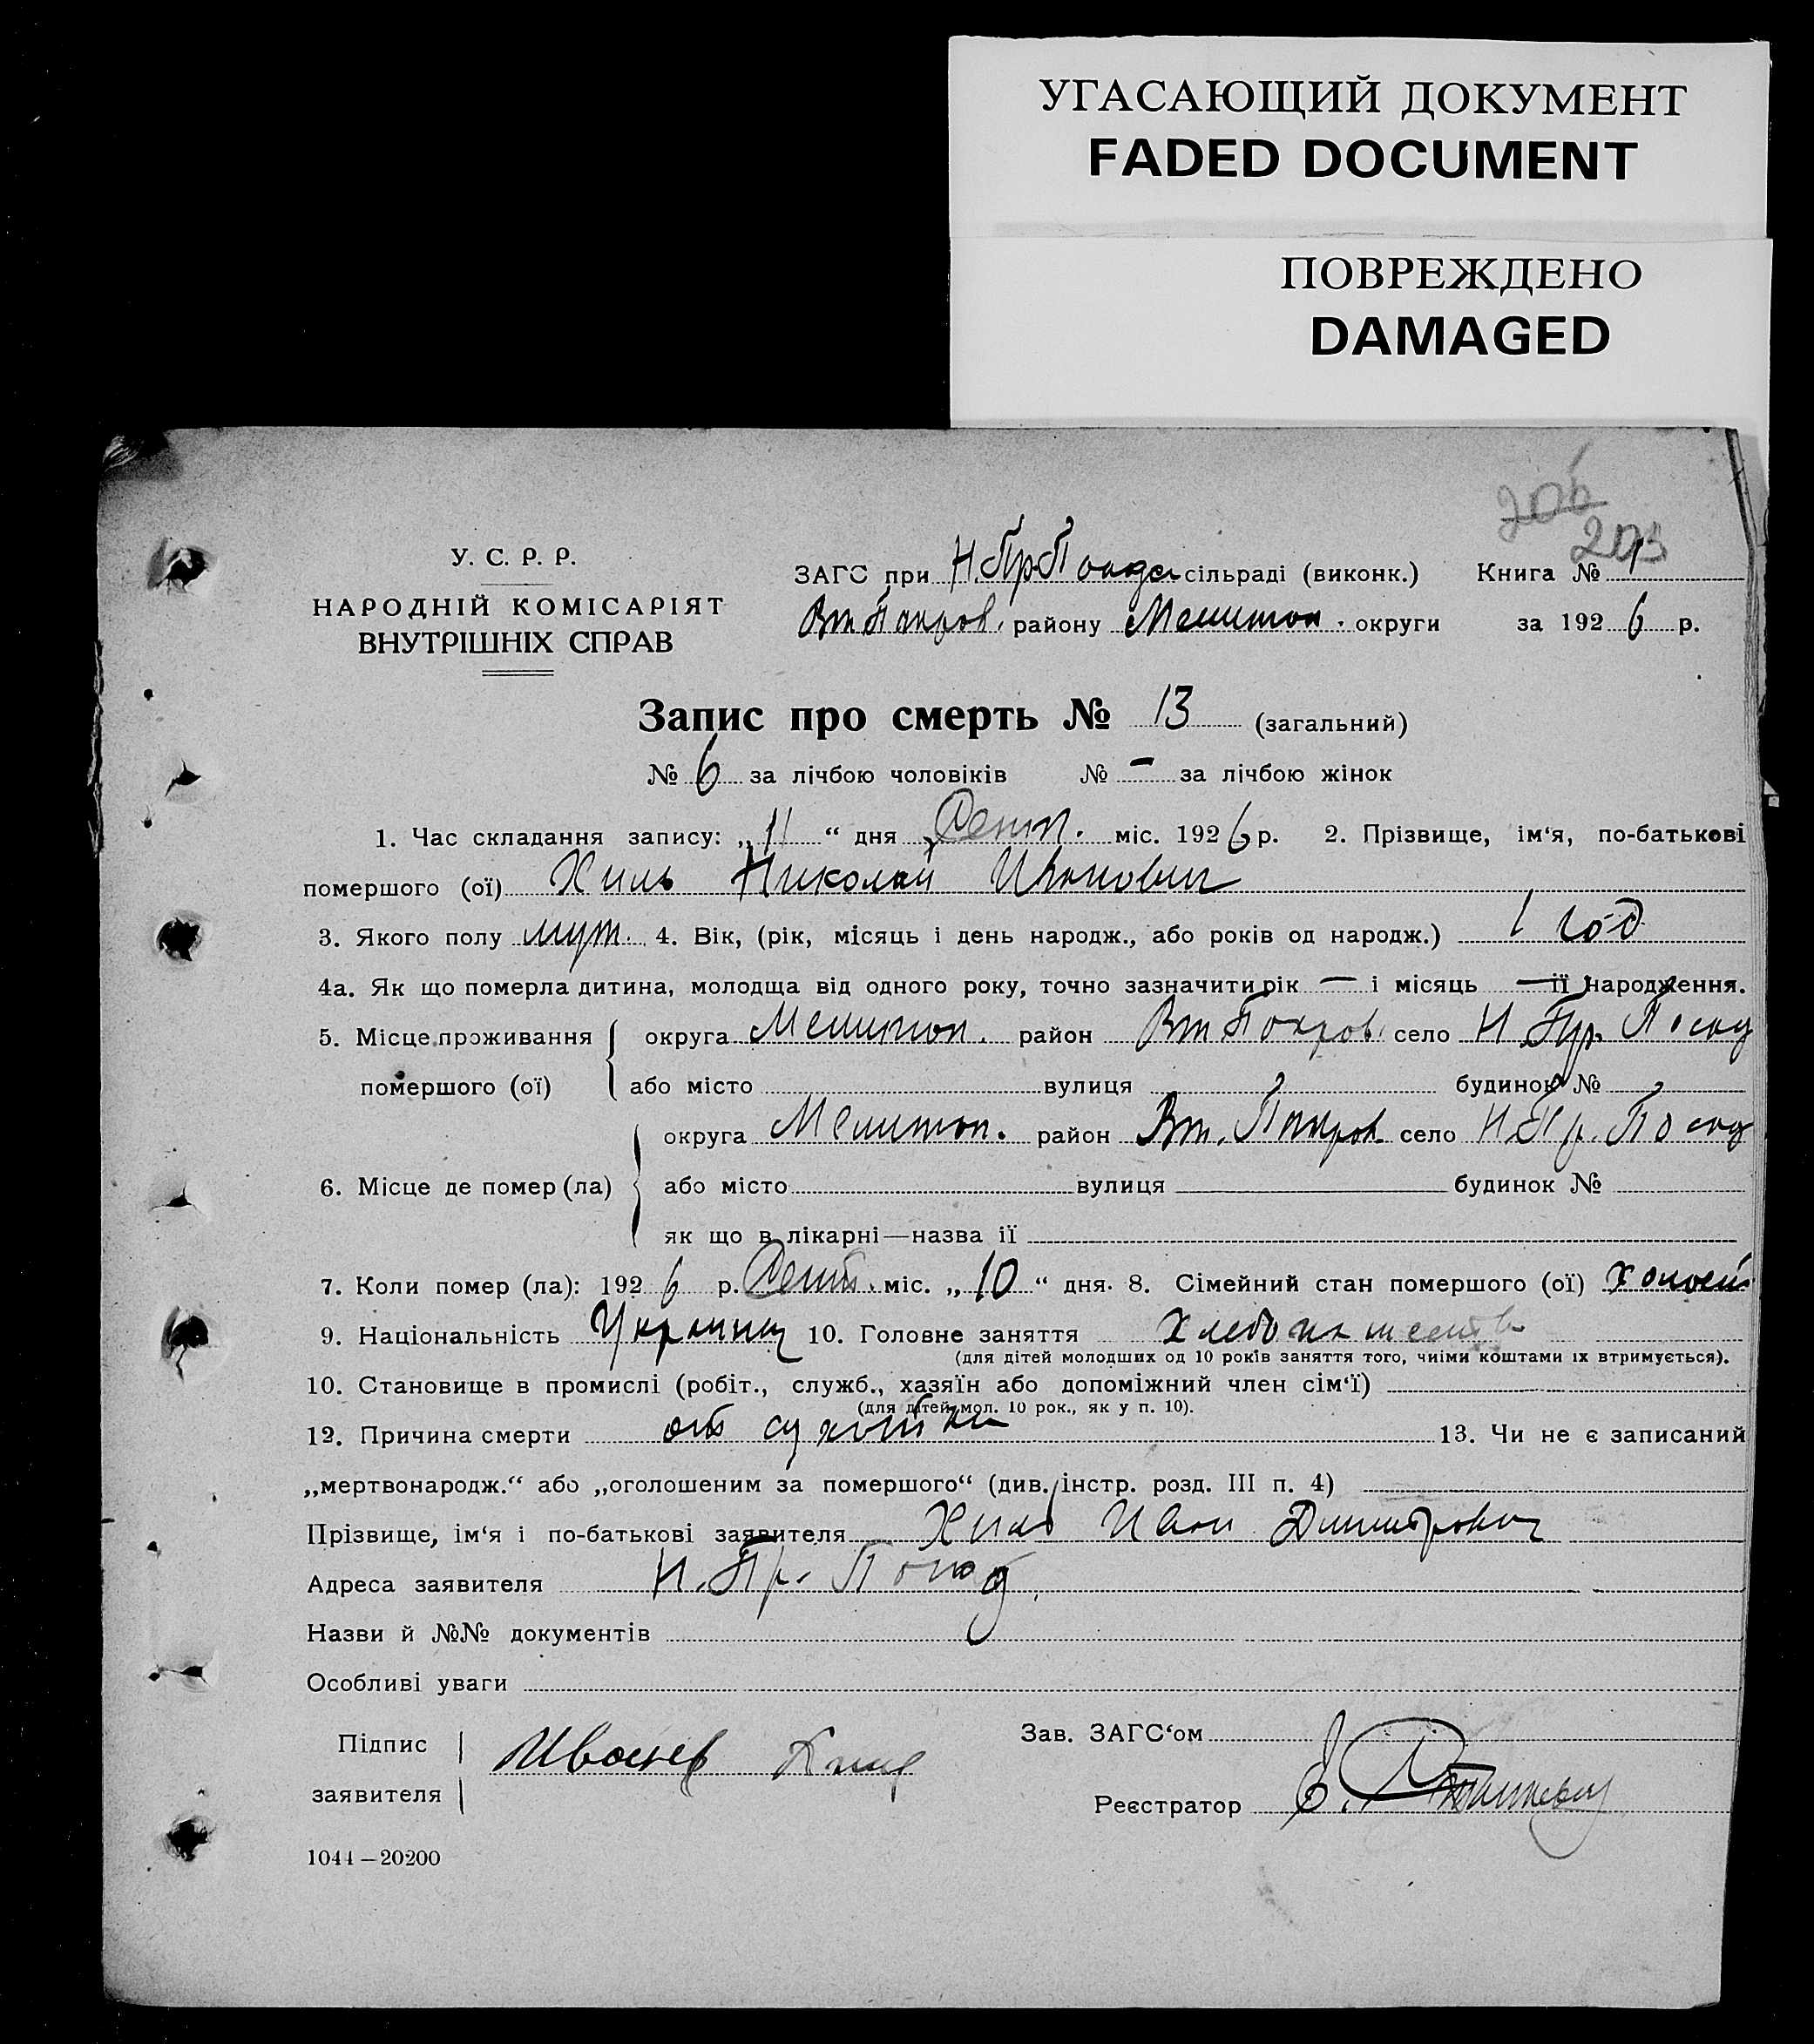 УГАСАЮЩИЙ ДОКУМЕНТ
FADED DOCUMENT
ПОВРЕЖДЕНО
DAMAGED
206
203
У. С. Р. Р.
НАРОДНІЙ КОМІСАРІЯТ
ВНУТРІШНІХ СПРАВ
ЗАГС при Н.Пр. сільраді (виконк.) Книга №
Вт. Покров. району Мелитоп. округи за 1926 р.
Запис про смерть № 13 (загальний)
№ 6 за лічбою чоловіків № — за лічбою жінок
1. Час складання запису: „11“ дня Сент. міс. 1926 р. 2. Прізвище, ім‘я, по-батькові
помершого (ої) Хиль Николай Иванович
3. Якого полу муж. 4. Вік, (рік, місяць і день народж., або років од народж.) 1 год
4а. Як що померла дитина, молодща від одного року, точно зазначити рік — і місяць — її народження.
5. Місце проживання помершого (ої) округа Мелитоп. район Вт. Покров. село Н. Пр. Посад
або місто вулиця будинок №
6. Місце де помер (ла) округа Мелитоп. район Вт. Покров. село Н. Пр. Посад
або місто вулиця будинок №
як що в лікарні—назва її
7. Коли помер (ла): 1926 р. Сент. міс. „10“ дня. 8. Сімейний стан помершого (ої) холост
9. Національність Украинец 10. Головне заняття хлебопашеств
(для дітей молодших од 10 років заняття того, чиїми коштами їх втримується).
10. Становище в промислі (робіт., служб., хазяїн або допоміжний член сім‘ї)
(для дітей мол. 10 рок., як у п. 10).
12. Причина смерти от сухотки 13. Чи не є записаний
„мертвонародж.“ або „оголошеним за помершого“ (див. інстр. розд. III п. 4)
Прізвище, ім‘я і по-батькові заявителя Хиль Иван Димитрович
Адреса заявителя Н. Пр. Посад
Назви й №№ документів
Особливі уваги
Підпис заявителя
Зав. ЗАГС‘ом
Реєстратор
1044—20200